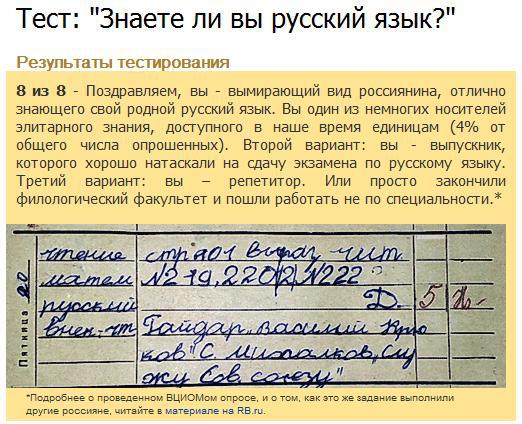 Тест: "Знаете ли вы русский язык?"
Результаты тестирования
8 из 8 - Поздравляем, вы - вымирающий вид россиянина, отлично
знающего свой родной русский язык. Вы один из немногих носителей
элитарного знания, доступного в наше время единицам (4% от
общего числа опрошенных). Второй вариант: вы - выпускник,
которого хорошо натаскали на сдачу экзамена по русскому языку.
Третий вариант: вы – репетитор. Или просто закончили
филологический факультет и пошли работать не по специальности.*
чтение стр 201 выраз. чит.
матем №219, 220(2), №222
русский Д. 5
внек. чт Гайдар „Василий Крю
Пятница
ков" С. Михалков „Слу
жу Сов. союзу"
*Подробнее о проведенном ВЦИОМом опросе, и о том, как это же задание выполнили
другие россияне, читайте в материале на RB.ru.